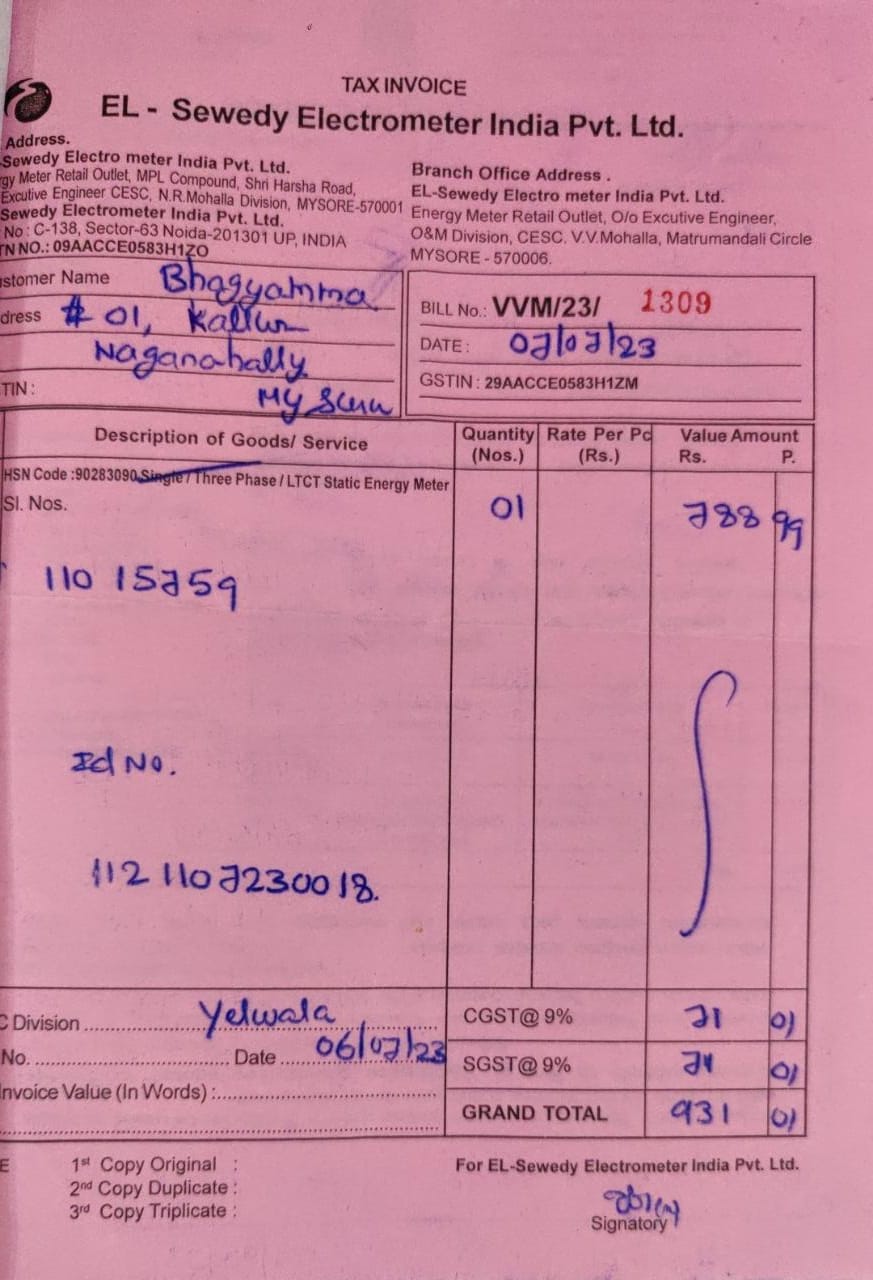 TAX INVOICE
EL - Sewedy Electrometer India Pvt. Ltd.
Address.
Sewedy Electro meter India Pvt. Ltd.
gy Meter Retail Outlet, MPL Compound, Shri Harsha Road,
Excutive Engineer CESC, N.R.Mohalla Division, MYSORE-570001
Sewedy Electrometer India Pvt. Ltd.
No : C-138, Sector-63 Noida-201301 UP, INDIA
TN NO.: 09AACCE0583H1ZO
Branch Office Address .
EL-Sewedy Electro meter India Pvt. Ltd.
Energy Meter Retail Outlet, O/o Excutive Engineer,
O&M Division, CESC. V.V.Mohalla, Matrumandali Circle
MYSORE - 570006.
stomer Name Bhagyamma
dress # 01, Kallur
Naganahally
TIN : Mysuru
BILL No.: VVM/23/ 1309
DATE : 07/07/23
GSTIN : 29AACCE0583H1ZM
Description of Goods/ Service Quantity (Nos.) Rate Per Pc (Rs.) Value Amount Rs. P.
HSN Code :90283090 Single / Three Phase / LTCT Static Energy Meter
Sl. Nos. 01 788 99
11015759
Id No.
112 1107230018.
C Division Yelwala CGST@ 9% 71 01
No. Date 06/07/23 SGST@ 9% 71 01
nvoice Value (In Words) : GRAND TOTAL 931 01
E 1st Copy Original :
2nd Copy Duplicate :
3rd Copy Triplicate :
For EL-Sewedy Electrometer India Pvt. Ltd.
Signatory